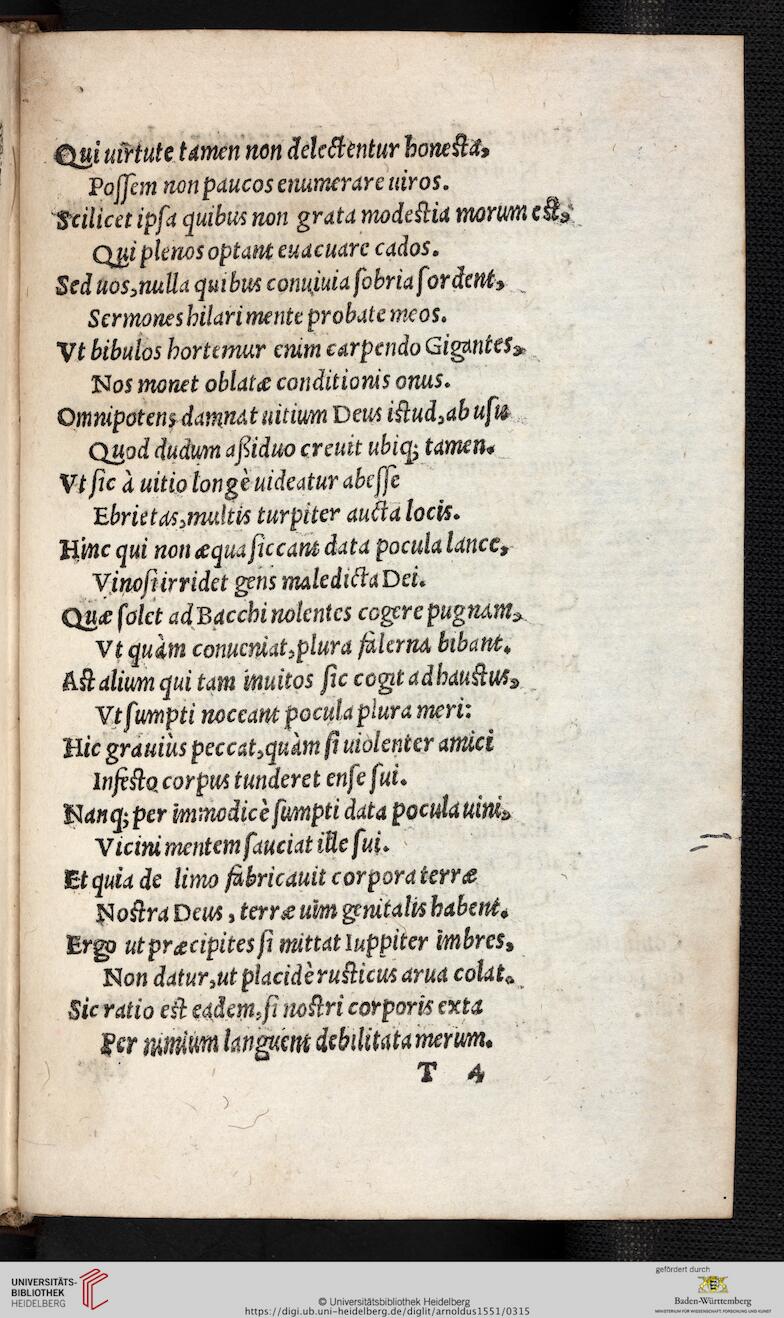 Qui uirtute tamen non delectentur honesta,
Possem non paucos enumerare uiros.
Scilicet ipsa quibus non grata modestia morum est,
Qui plenos optant euacuare cados.
Sed uos, nulla quibus conuiuia sobria sordent,
Sermones hilari mente probate meos.
Vt bibulos hortemur enim carpendo Gigantes,
Nos monet oblatæ conditionis onus.
Omnipotens damnat uitium Deus istud, ab usu
Quod dudum aßiduo creuit ubiq; tamen.
Vt sic à uitio longè uideatur abesse
Ebrietas, multis turpiter aucta locis.
Hinc qui non æqua siccant data pocula lance,
Vinosi irridet gens maledicta Dei.
Quæ solet ad Bacchi nolentes cogere pugnam,
Vt quàm conueniat, plura falerna bibant.
Ast alium qui tam inuitos sic cogit ad haustus,
Vt sumpti noceant pocula plura meri:
Hic grauiùs peccat, quàm si uiolenter amici
Infesto corpus tunderet ense sui.
Nanq; per immodicè sumpti data pocula uini,
Vicini mentem sauciat ille sui.
Et quia de limo fabricauit corpora terræ
Nostra Deus, terræ uim genitalis habent.
Ergo ut præcipites si mittat Iuppiter imbres,
Non datur, ut placidè rusticus arua colat.
Sic ratio est eadem, si nostri corporis exta
Per nimium languent debilitata merum.
T 4
UNIVERSITÄTS-
BIBLIOTHEK
HEIDELBERG
© Universitätsbibliothek Heidelberg
https://digi.ub.uni-heidelberg.de/diglit/arnoldus1551/0315
gefördert durch
Baden-Württemberg
MINISTERIUM FÜR WISSENSCHAFT, FORSCHUNG UND KUNST